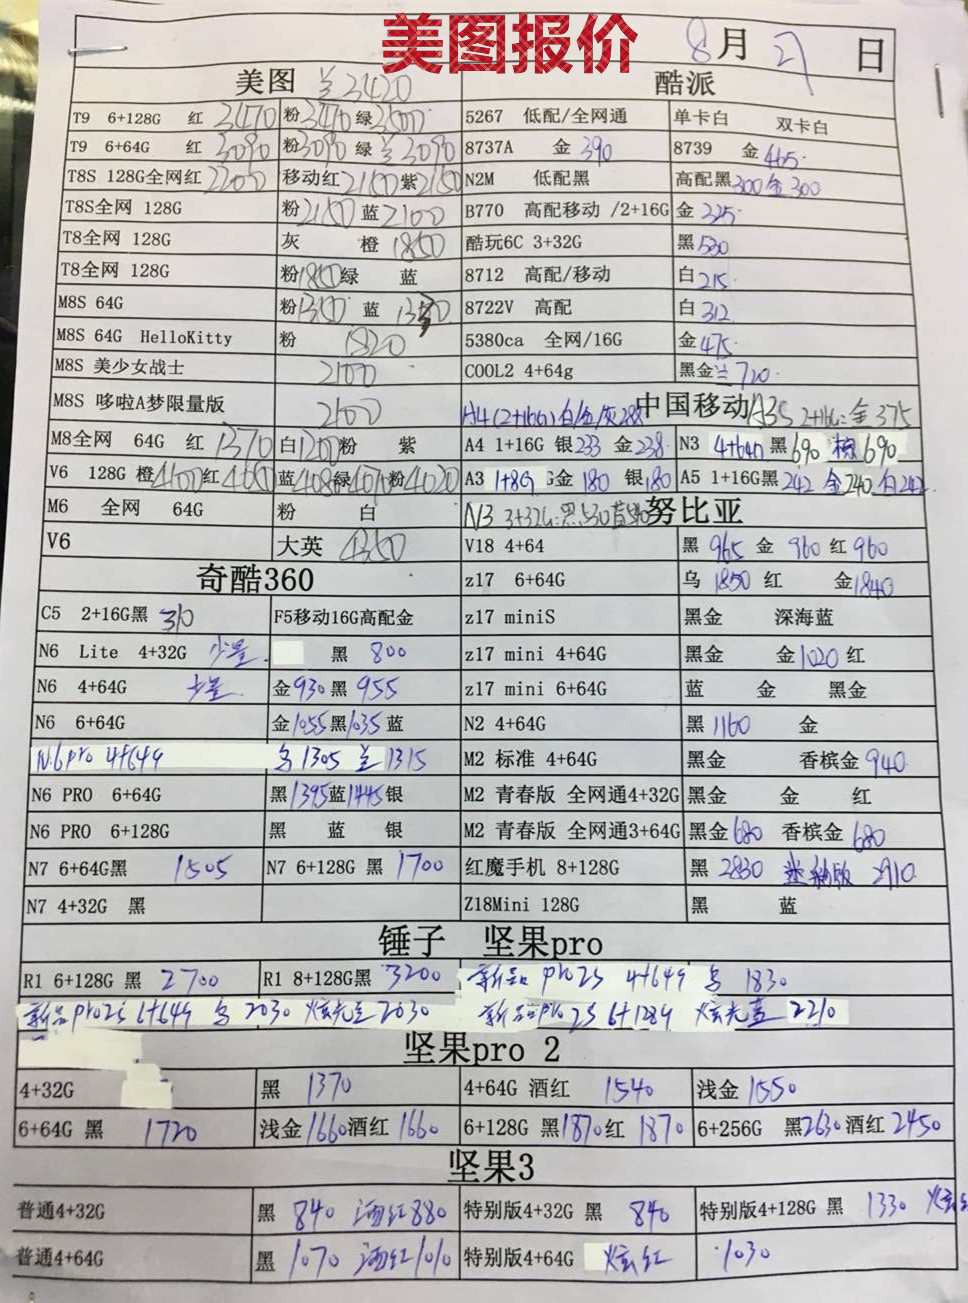 美图报价
8月27日
美图 兰3420 酷派
T9 6+128G 红 3470 粉3470 绿3500 5267 低配/全网通 单卡白 双卡白
T9 6+64G 红 3090 粉3090 绿 兰3090 8737A 金 390 8739 金465
T8S 128G全网红2200 移动红2150紫2150 N2M 低配黑 高配黑300金300
T8S全网 128G 粉2150 蓝2100 B770 高配移动 /2+16G 金 325
T8全网 128G 灰 橙 1850 酷玩6C 3+32G 黑530
T8全网 128G 粉1850绿 蓝 8712 高配/移动 白215
M8S 64G 粉1300 蓝 8722V 高配 白312
M8S 64G HelloKitty 粉 1820 5380ca 全网/16G 金475
M8S 美少女战士 2100 COOL2 4+64g 黑金兰720
M8S 哆啦A梦限量版 2100 A4(2+16G)白/金/灰288 中国移动 A3S 2+16G:金375
M8全网 64G 红 1370 白1200粉 紫 A4 1+16G 银233 金238 N3 4+64G 黑690 690
V6 128G 橙4100红4050 蓝4080绿4070粉4020 A3 1+8G 金 180 银180 A5 1+16G黑242 金240 白242
M6 全网 64G 粉 白 N3 3+32G:黑530 努比亚
V6 大英 4350 V18 4+64 黑 965 金 960 红960
奇酷360 z17 6+64G 乌 1850 红 金1840
C5 2+16G黑 310 F5移动16G高配金 z17 miniS 黑金 深海蓝
N6 Lite 4+32G 少量 黑 800 z17 mini 4+64G 黑金 金1020红
N6 4+64G 少量 金930黑955 z17 mini 6+64G 蓝 金 黑金
N6 6+64G 金1055黑1035蓝 N2 4+64G 黑1160 金
N6pro 4+64G 乌1305 兰1315 M2 标准 4+64G 黑金 香槟金940
N6 PRO 6+64G 黑1395蓝1445银 M2 青春版 全网通4+32G 黑金 金 红
N6 PRO 6+128G 黑 蓝 银 M2 青春版 全网通3+64G 黑金680 香槟金680
N7 6+64G黑 1505 N7 6+128G 黑 1700 红魔手机 8+128G 黑 2830 迷彩版 2910
N7 4+32G 黑 Z18Mini 128G 黑 蓝
锤子 坚果pro
R1 6+128G 黑 2700 R1 8+128G黑 3200 新品pro2S 4+64G 乌 1830
新品pro2S 6+64G 乌 2030 炫光兰2030 新品pro2S 6+128G 炫光蓝2210
坚果pro 2
4+32G 黑 1370 4+64G 酒红 1540 浅金1550
6+64G 黑 1720 浅金1660酒红1660 6+128G 黑1870红1870 6+256G 黑2630酒红2450
坚果3
普通4+32G 黑 840 酒红880 特别版4+32G 黑 840 特别版4+128G 黑 1330 炫红
普通4+64G 黑 1070 酒红1010 特别版4+64G 炫红 1030